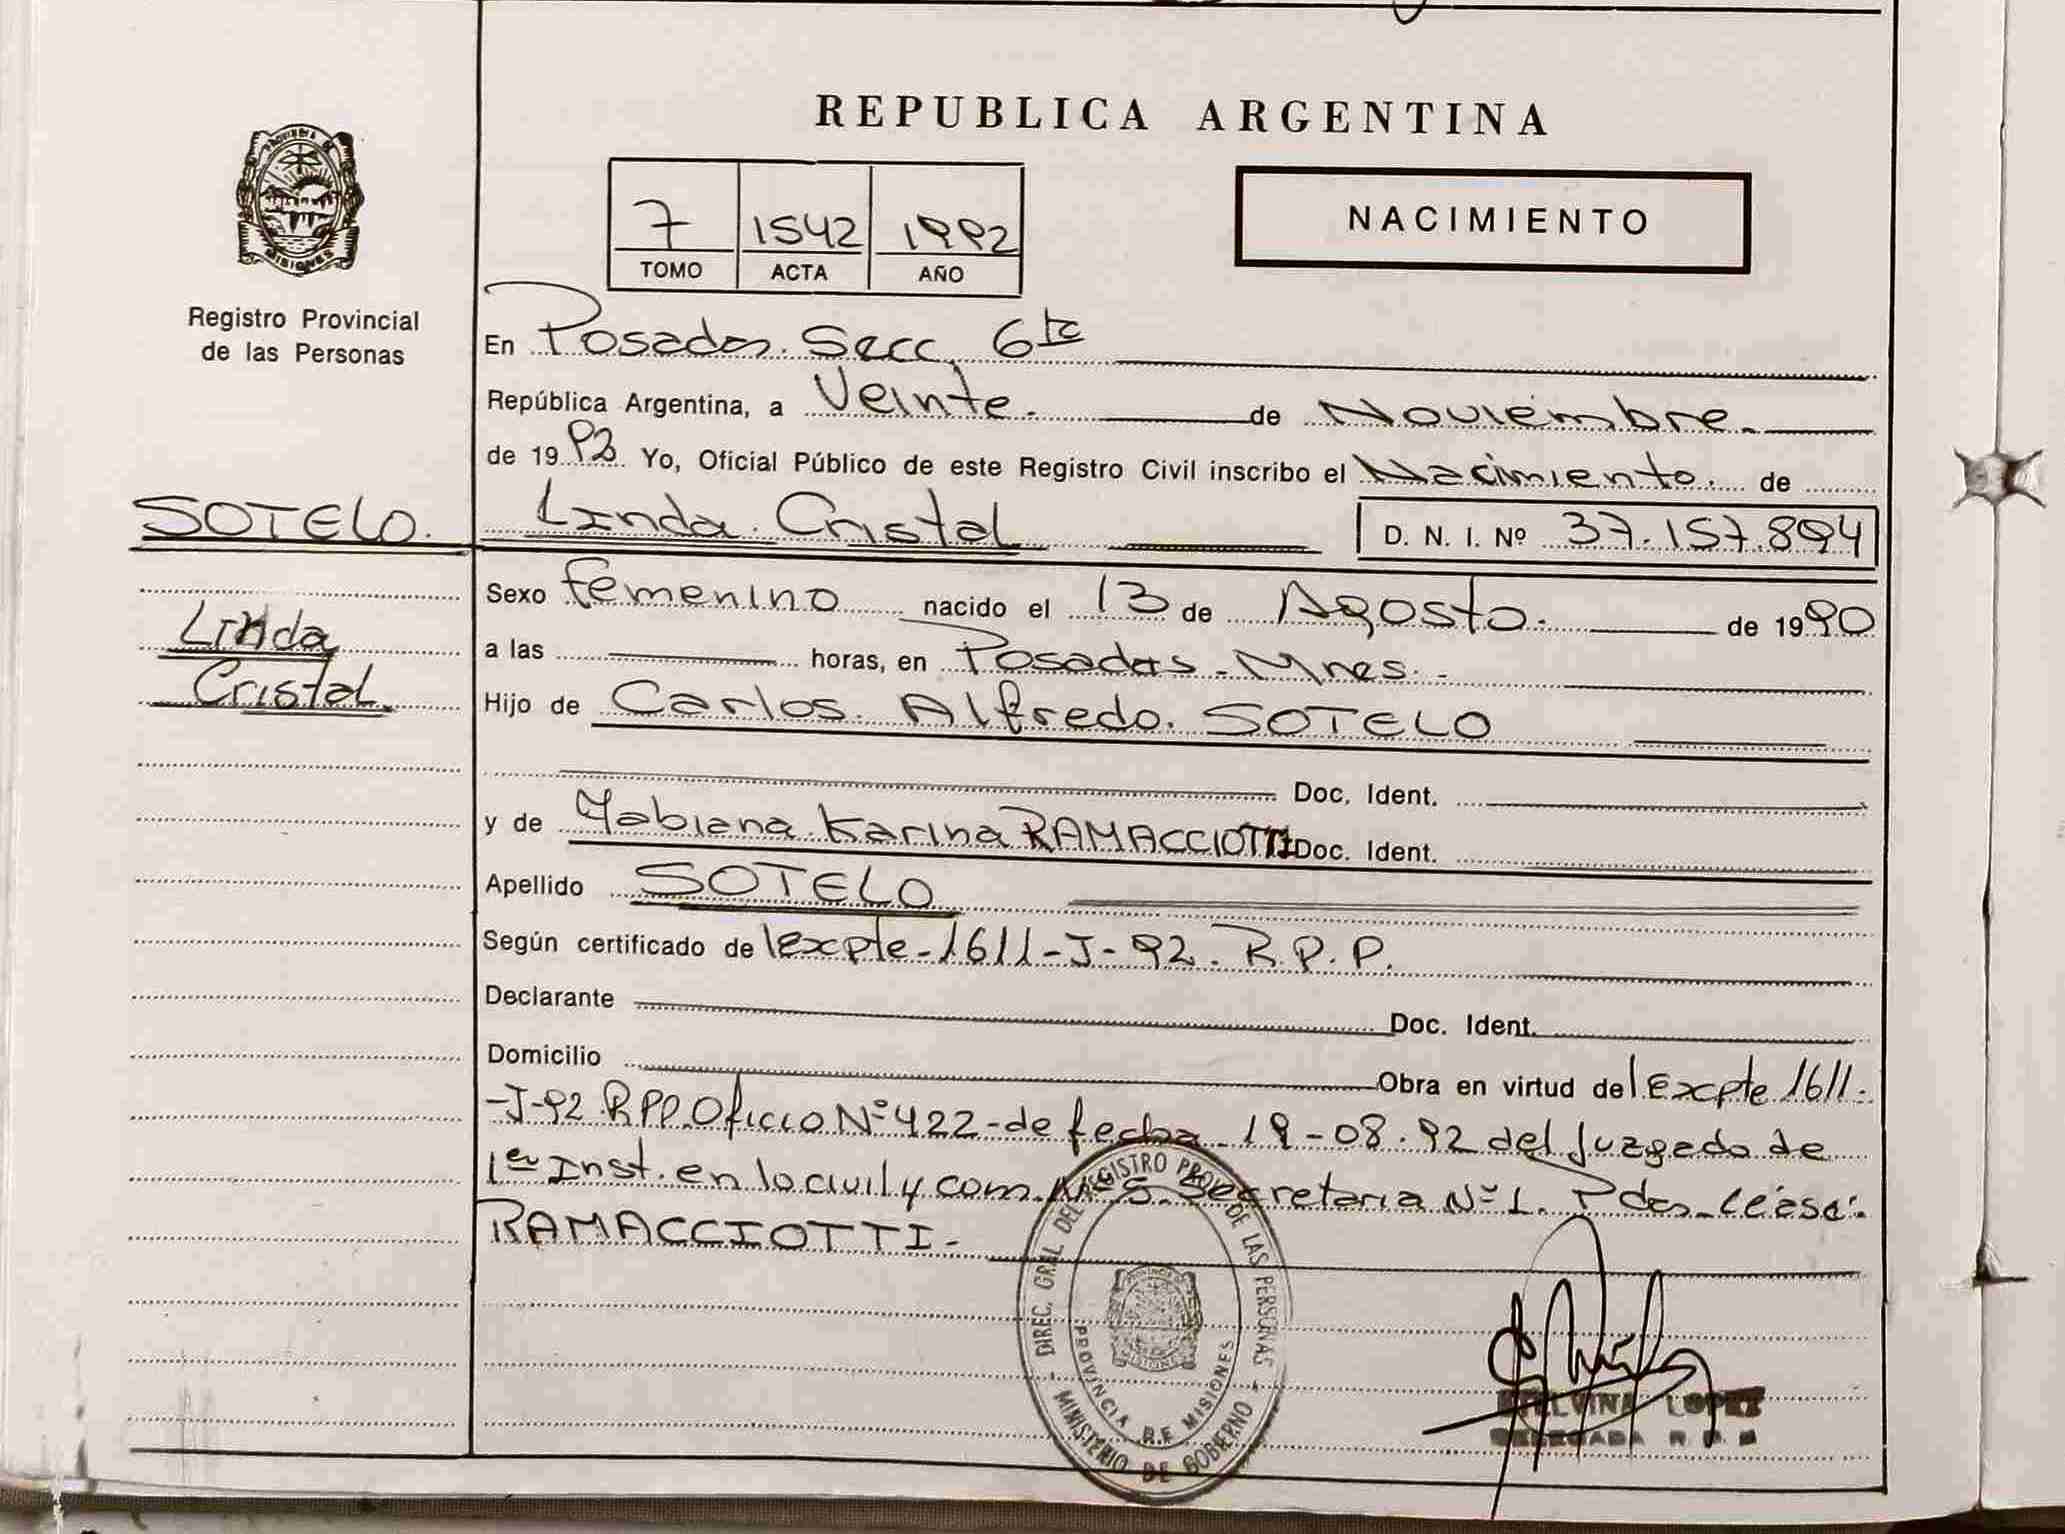 REPUBLICA ARGENTINA
7 1542 1992
TOMO ACTA AÑO
NACIMIENTO
PROVINCIA DE MISIONES
Registro Provincial
de las Personas
En Posadas. Secc. 6ta
República Argentina, a Veinte. de Noviembre.
de 1992 Yo, Oficial Público de este Registro Civil inscribo el Nacimiento. de
SOTELO. Linda. Cristal D. N. I. Nº 37.157.894
Sexo femenino nacido el 13 de Agosto. de 1990
Linda
Cristal.
a las horas, en Posadas - Mnes. -
Hijo de Carlos. Alfredo. SOTELO
Doc. Ident.
y de Fabiana Karina RAMACCIOTTI Doc. Ident.
Apellido SOTELO
Según certificado de lExpte-1611-J-92. R.P.P.
Declarante Doc. Ident.
Domicilio Obra en virtud del Expte 1611-
-J-92.RPP.Oficio Nº422-de fecha 19-08.92 del Juzgado de
1er Inst. en lo civil y com. Nº5. Secretaria Nº1. Pdas_Léase:
RAMACCIOTTI-
DIREC. GRAL. DEL REGISTRO PROV. DE LAS PERSONAS
PROVINCIA DE MISIONES
MINISTERIO DE GOBIERNO
LOPEZ
DELEGADA R. P. P.